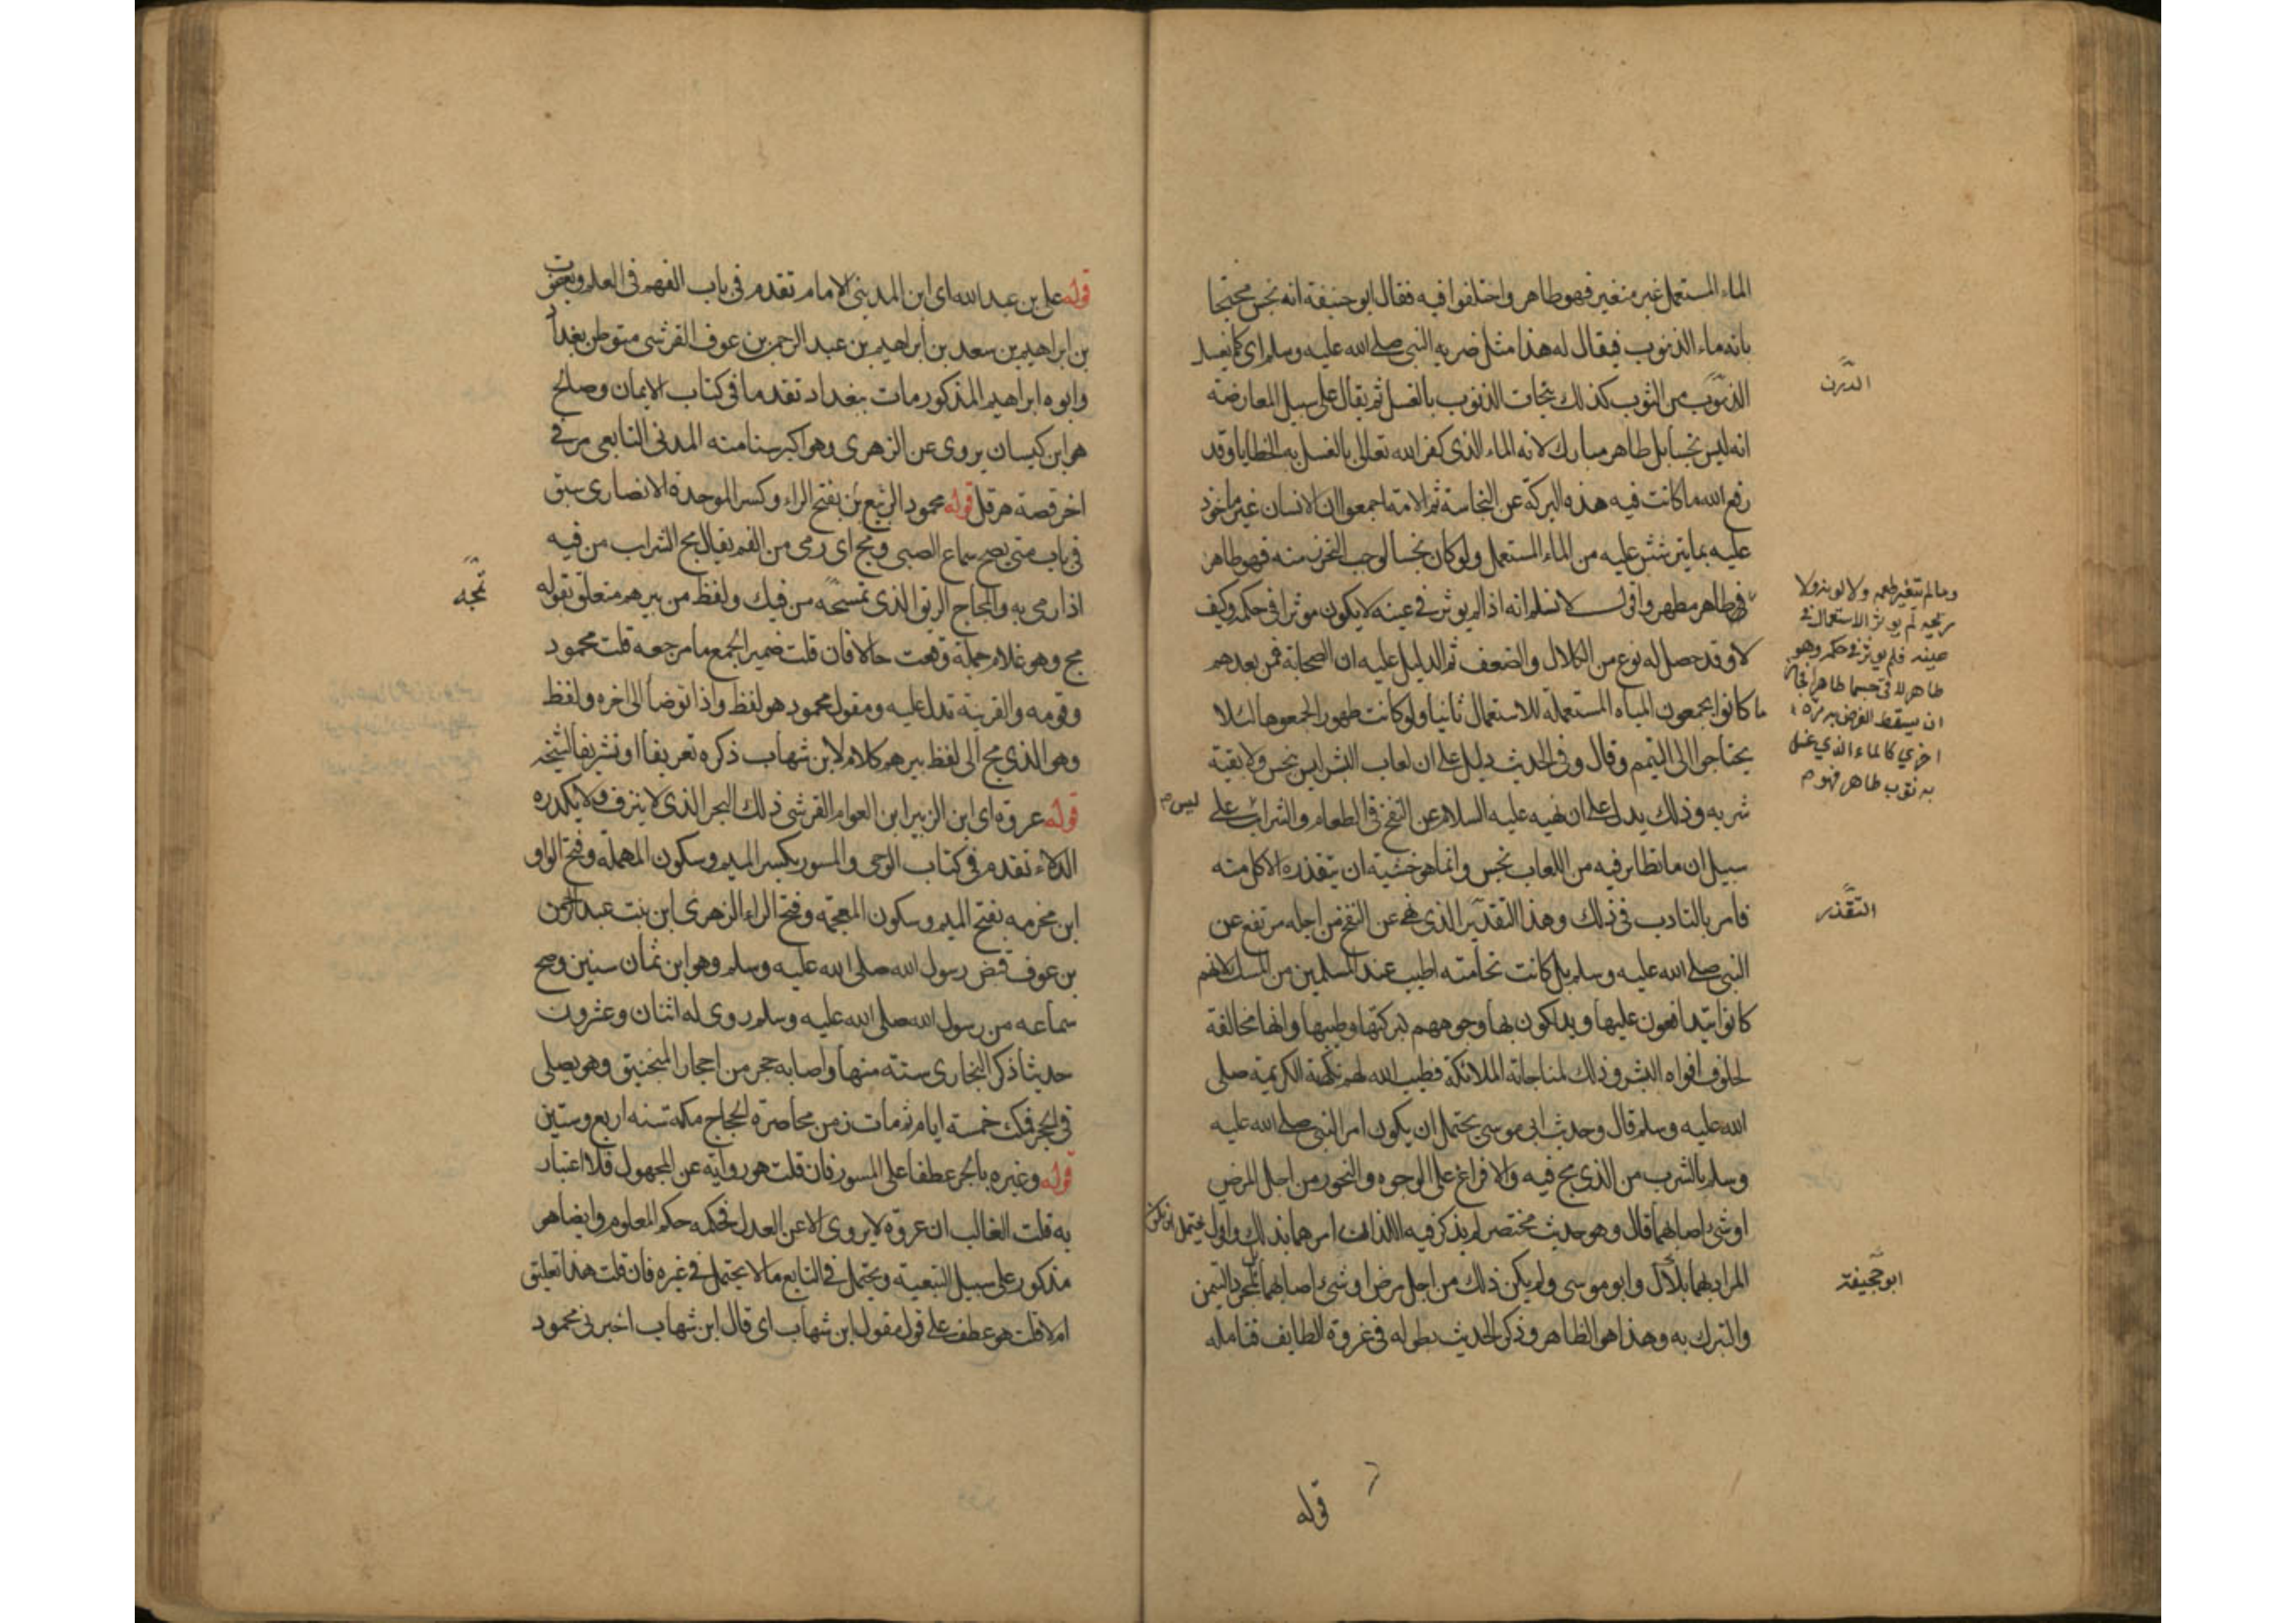 الماء المستعمل غير متغير فهو طاهر واختلفوا فيه فقال ابو حنيفة انه نجس محتجا
بانه ماء الذنوب فيقال له هذا مثل ضربه النبي صلى الله عليه وسلم اى كما يغسل
الذنوب من الثوب كذلك تحات الذنوب بالغسل ثم يقال على سبيل المعارضة
انه ليس نجسا بل طاهر مبارك لانه الماء الذى كفر الله تعالى بالغسل به الخطايا وقد
رفع الله ما كانت فيه هذه البركة عن النجاسة ثم الامة اجمعوا ان الانسان غير ماخوذ
عليه بما يترشش عليه من الماء المستعمل ولو كان نجسا لوجب التحرز منه فهو طاهر
فهو طاهر مطهر واقول لا نسلم انه اذا لم يوثر فى عينه لا يكون موثرا فى حكمه وكيف
لا وقد حصل له نوع من الكلال والضعف ثم الدليل عليه ان الصحابة فمن بعدهم
ما كانوا يجمعون المياه المستعملة للاستعمال ثانيا ولو كانت طهورا لجمعوها لئلا
يحتاجوا الى التيمم وقال وفى الحديث دليل على ان لعاب البشر ليس بنجس ولا بقية
شربه وذلك يدل على ان نهيه عليه السلام عن النفخ فى الطعام والشراب على
ليس م
سبيل ان ما تطاير فيه من اللعاب نجس وانما هو خشية ان يتقذره الاكل منه
فامر بالتادب فى ذلك وهذا التقدير الذى نهى عن النفخ من اجله مرتفع عن
النبى صلى الله عليه وسلم بل كانت نخامته اطيب عند المسلمين من المسك لانهم
كانوا يتدافعون عليها ويدلكون بها وجوههم لبركتها وطيبها وانها مخالفة
لخلوف افواه البشر وذلك لمناجاته الملائكة فطيب الله لهم نكهته الكريمة صلى
الله عليه وسلم قال وحديث ابى موسى يحتمل ان يكون امر النبى صلى الله عليه
وسلم بالشرب من الذى مج فيه والافراغ على الوجوه والنحور من اجل المرض
او شى اصابهما قال وهو حديث مختصر لم يذكر فيه اللذان امرهما بذلك واقول يحتمل ان يكون
المراد بهما بلال وابو موسى ولم يكن ذلك من اجل مرض او شى اصابهما بل لمجرد التيمن
والتبرك به وهذا هو الظاهر وذكر الحديث بطوله فى غزوة الطايف فتامله
قوله
الدرن
وما لم يتغير طعمه ولا لونه ولا
ريحه لم يوثر الاستعمال فى
عينه فلم يوثر فى حكمه وهو
طاهر لاقى جسما طاهرا فجاز
ان يسقط الفرض به مرة
اخرى كالماء الذي غسل
به ثوب طاهر فهو م
التقذر
ابو جحيفة
قوله على بن عبد الله اى ابن المدينى الامام تقدم فى باب الفهم فى العلم ويعقوب
بن ابراهيم بن سعد بن ابراهيم بن عبد الرحمن بن عوف القرشى متوطن بغداد
وابوه ابراهيم المذكور مات ببغداد تقدما فى كتاب الايمان وصالح
هو ابن كيسان يروى عن الزهرى وهو اكبر سنا منه المدنى التابعى مر فى
اخر قصة هرقل قوله محمود الربيع بن بفتح الراء وكسر الموحدة الانصارى سبق
فى باب متى يصح سماع الصبى ومج اى رمى من الفم يقال مج الشراب من فيه
اذا رمى به والمجاج الريق الذى تمسحه من فيك ولفظ من بيرهم متعلق بقوله
مج وهو غلام جملة وقعت حالا فان قلت ضمير الجمع ما مرجعه قلت محمود
وقومه والقرينة تدل عليه ومقول محمود هو لفظ واذا توضأ الى اخره ولفظ
وهو الذي مج الى لفظ بيرهم كلام لابن شهاب ذكره تعريفا او تشريفا لشيخه
قوله عروة اى ابن الزبير ابن العوام القرشى ذلك البحر الذى لا ينزف ولا يكدره
الدلاء تقدم فى كتاب الوحى والمسور بكسر الميم وسكون المهملة وفتح الواو
ابن مخرمه بفتح الميم وسكون المعجمة وفتح الراء الزهرى ابن بنت عبد الرحمن
بن عوف قبض رسول الله صلى الله عليه وسلم وهو ابن ثمان سنين وصح
سماعه من رسول الله صلى الله عليه وسلم روى له اثنان وعشرون
حديثا ذكر البخارى ستة منها واصابه حجر من احجار المنجنيق وهو يصلى
فى الحجر فمكث خمسة ايام ثم مات زمن محاصرة الحجاج مكة سنه اربع وستين
قوله وغيره بالجر عطفا على المسور فان قلت هو رواية عن المجهول فلا اعتبار
به قلت الغالب ان عروة لا يروى الا عن العدل فحكمه حكم المعلوم وايضا هو
مذكور على سبيل التبعية ويحتمل فى التابع ما لا يحتمل فى غيره فان قلت هذا تعليق
ام لا قلت هو عطف على قول مقول ابن شهاب اى قال ابن شهاب اخبرنى محمود
تمجه